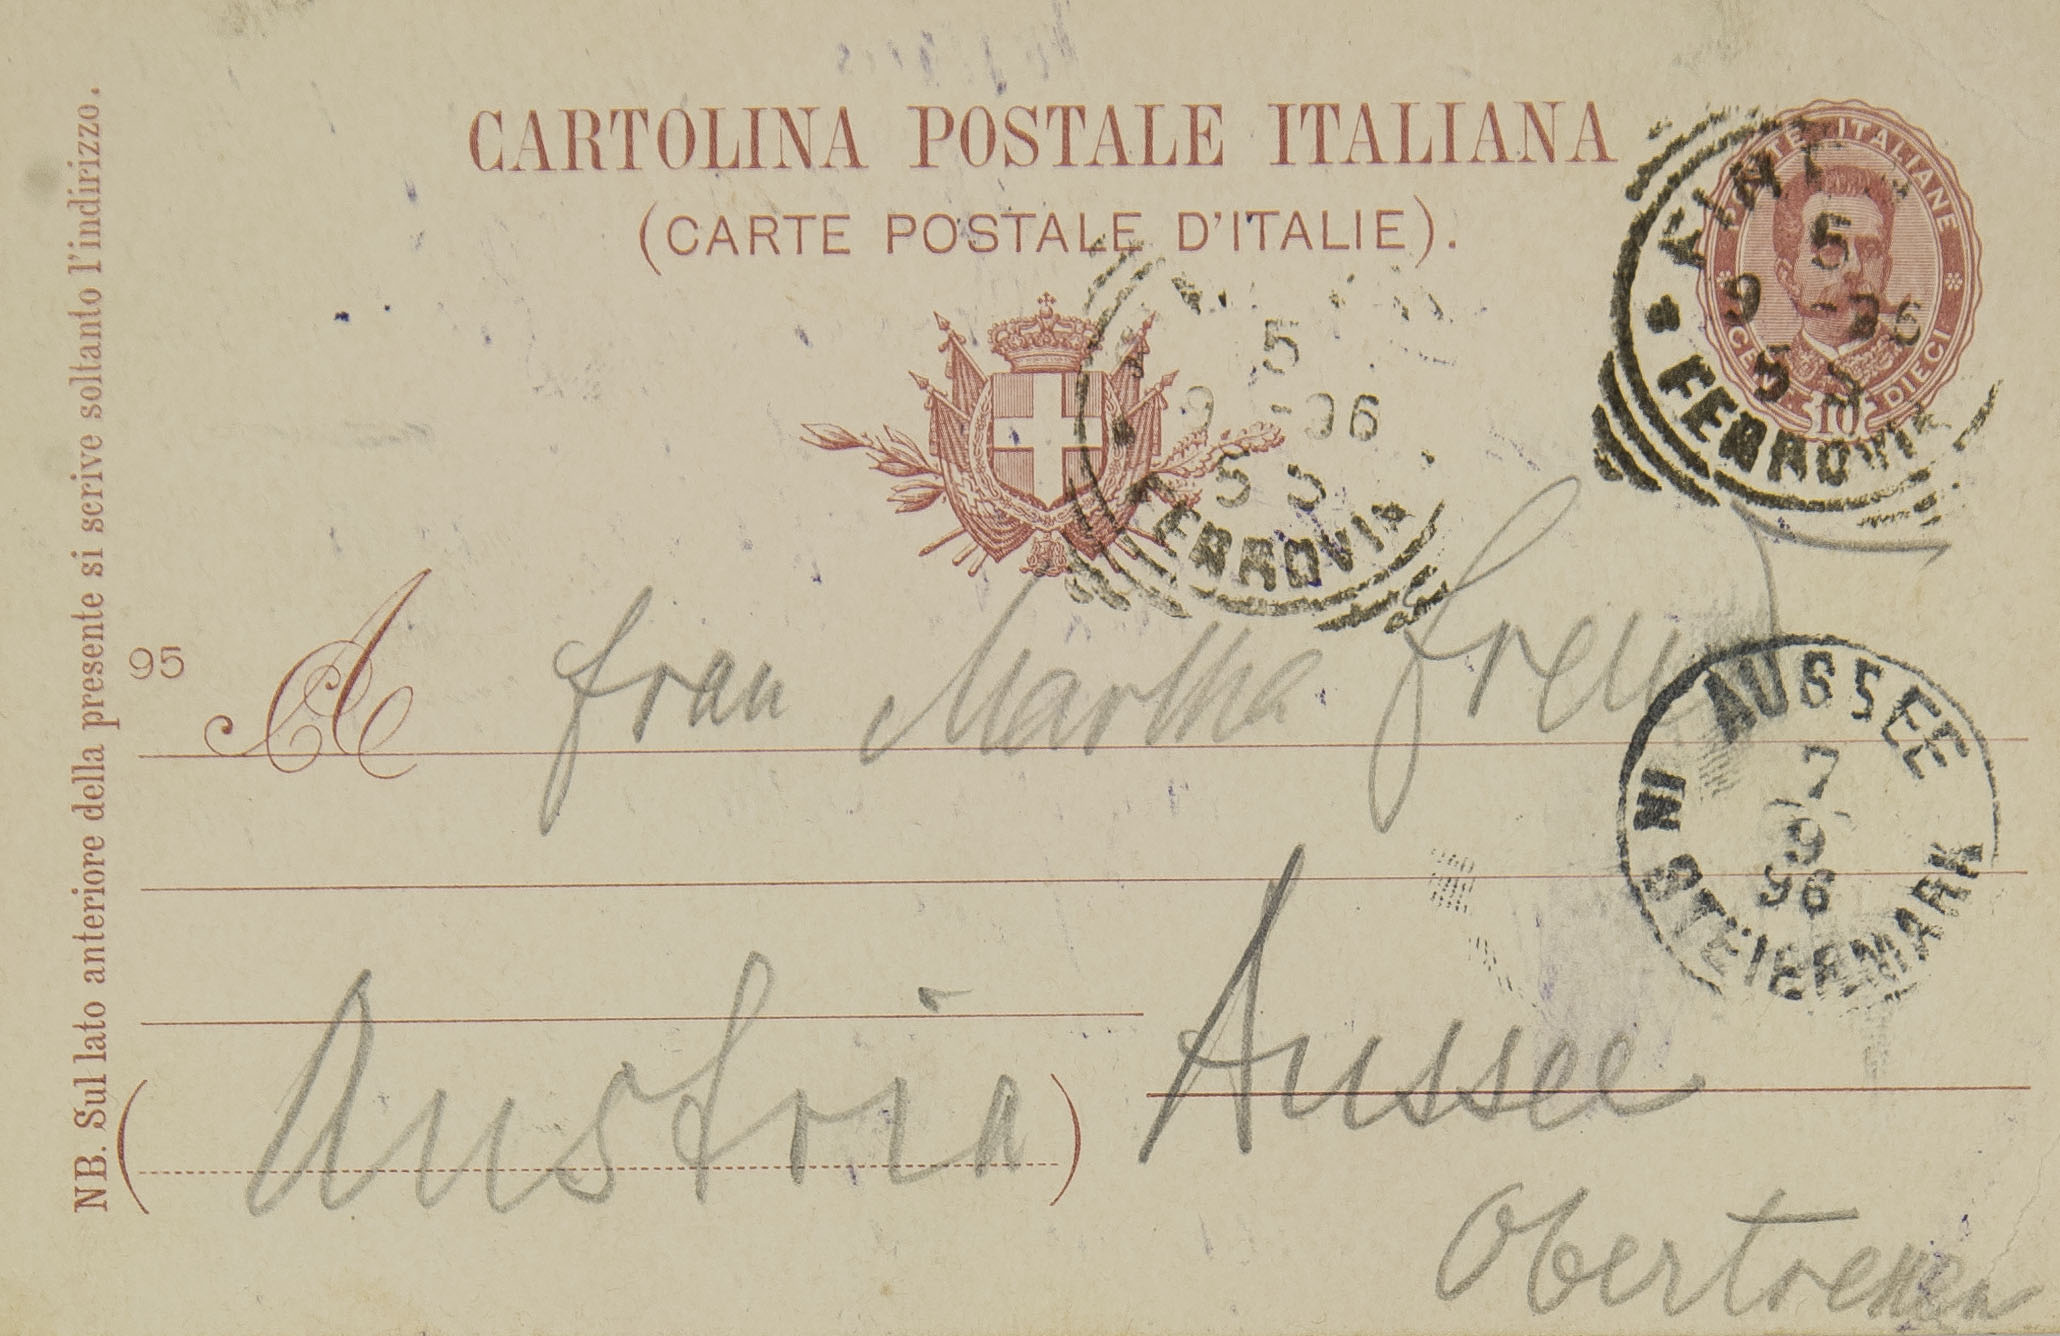 CARTOLINA POSTALE ITALIANA
(CARTE POSTALE D'ITALIE).
POSTE ITALIANE
DIECI
10
5
9 -96
5 S
FERROVIA
5
9 -96
5 S
FERROVIA
NB. Sul lato anteriore della presente si scrive soltanto l'indirizzo.
95
A Frau Martha Freud
AUSSEE
IN STEIERMARK
7
9
96
Aussee
(Austria)
Obertressen